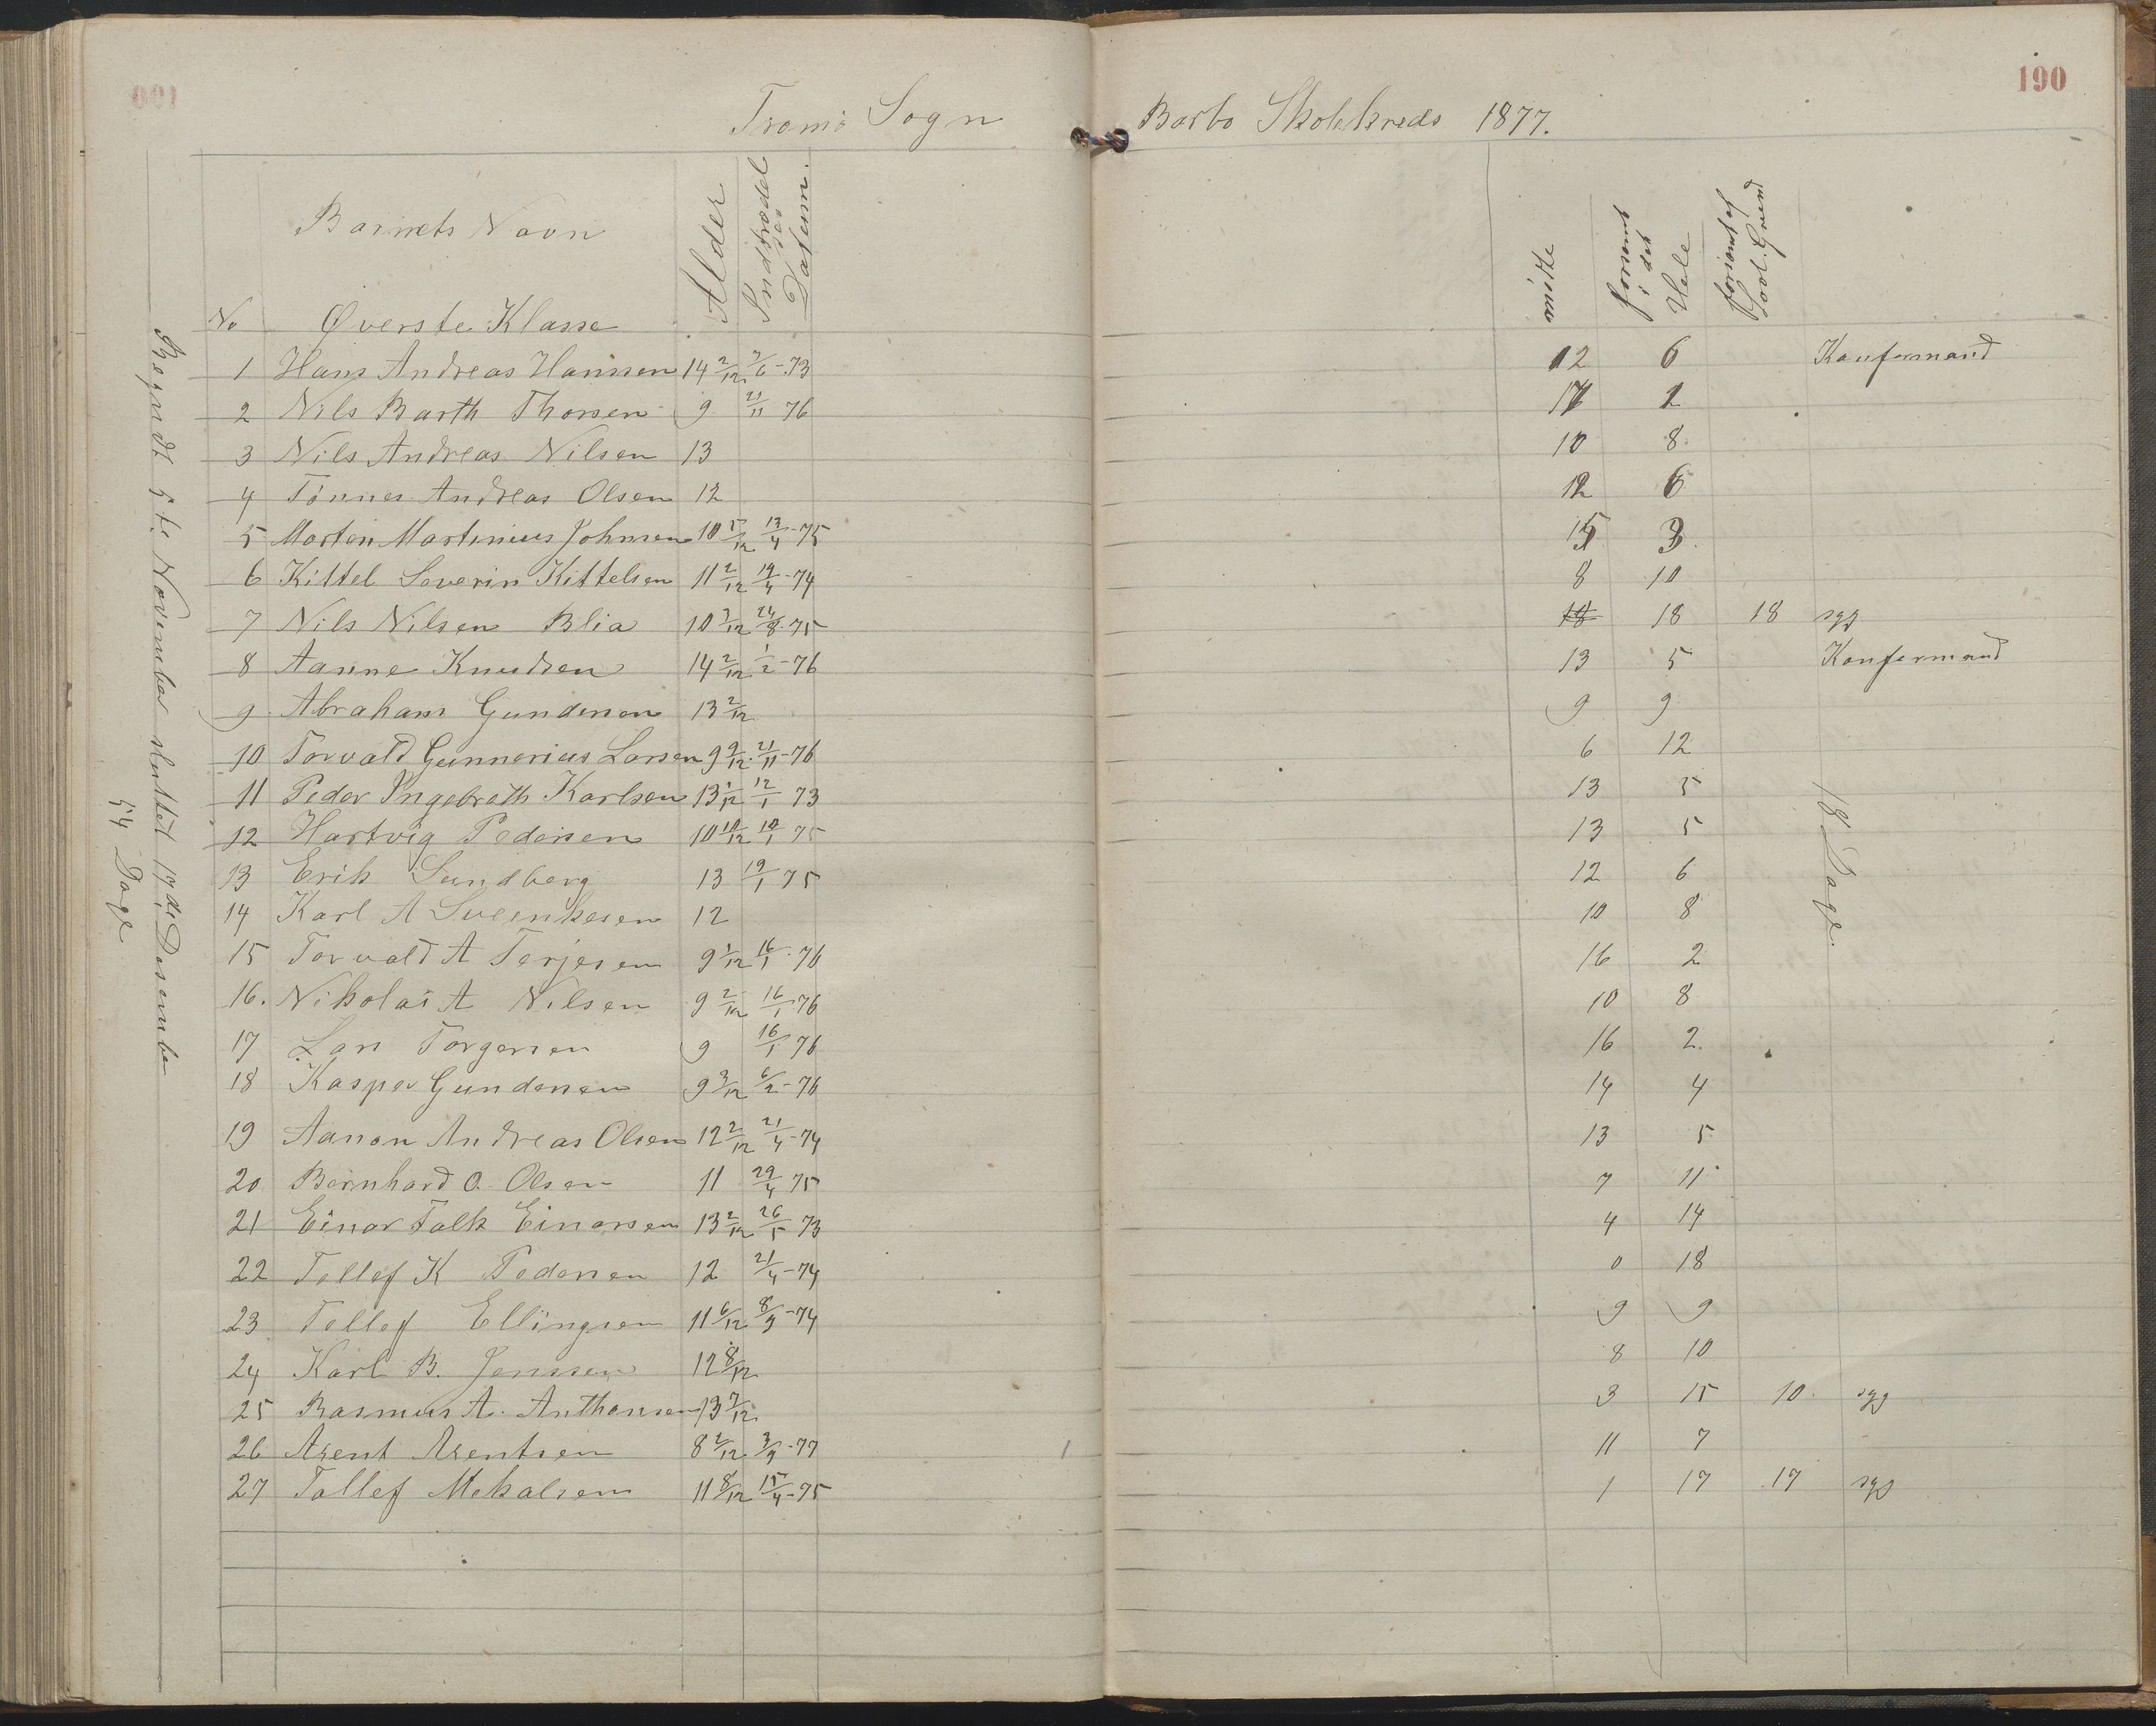 190
Tromø Sogn Barbo Skolekreds 1877.
No Barnets Navn Alder Indtrædelses Datum. mødte forsømt i det Hele forsømt af Lovl. Grund
Øverste Klasse
1 Hans Andreas Hanssen 14 2/12 7/6-73 12 6 Konfermand
2 Nils Barth Thorsen 9 21/11 76 17 1
3 Nils Andreas Nilsen 13 10 8
4 Tønnes Andreas Olsen 12 12 6
5 Morten Martinius Johnsen 10 5/12 13/4-75 15 3
6 Kittel Severin Kittelsen 11 2/12 19/4-74 8 10
7 Nils Nilsen Blia 10 3/12 24/8-75 18 18 18 syg
8 Aanne Knudsen 14 2/12 1/2-76 13 5 Konfermand
9 Abraham Gundersen 13 2/12 9 9
10 Torvald Gunnerius Larsen 9 9/12 21/11-76 6 12
11 Peder Ingebreth Karlsen 13 1/12 12/1 73 13 5
12 Hartvig Pedersen 10 10/12 10/1 75 13 5
13 Erik Sundberg 13 19/1 75 12 6
14 Karl A Sveinkesen 12 10 8
15 Torvald A Terjesen 9 1/12 16/1-76 16 2
16. Nikolai A Nilsen 9 2/12 16/1 76 10 8
17 Lars Torgersen 9 16/1 76 16 2
18 Kasper Gundersen 9 3/12 6/2-76 14 4
19 Aanon Andreas Olsen 12 2/12 21/4-74 13 5
20 Bernhard O. Olsen 11 29/4 75 7 11
21 Einar Falk Einarsen 13 2/12 26/5 73 4 14
22 Tellef K Pedersen 12 21/4-74 0 18
23 Tellef Ellingsen 11 6/12 8/9-74 9 9
24 Karl B. Jenssen 12 8/12 8 10
25 Rasmus A. Anthonsen 13 7/12 3 15 10 syg
26 Arent Arentsen 8 2/12 3/9-77 11 7
27 Tallef Mekalsen 11 8/12 15/4-75 1 17 17 syg
18 Dage.
Begyndt 5te November sluttet 17de Desember
54 Dage